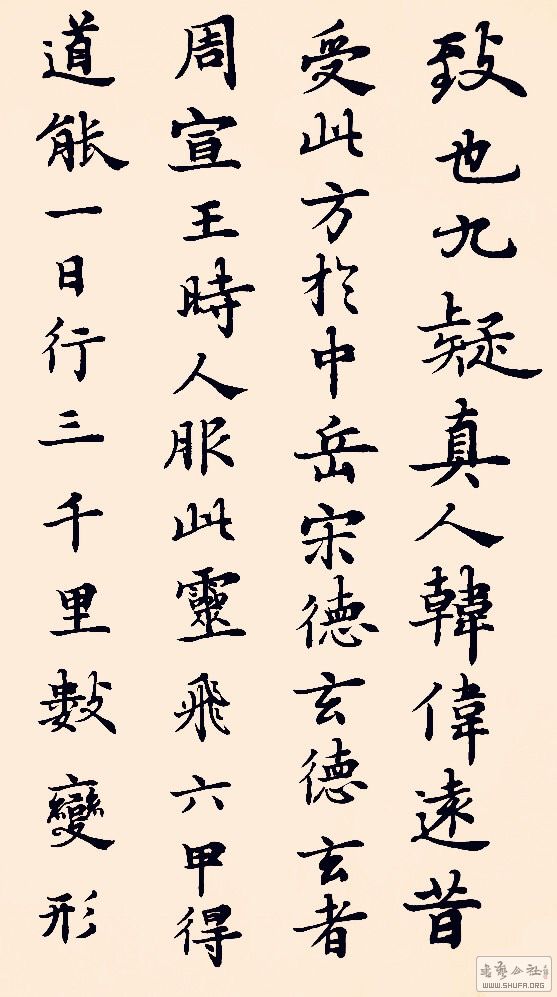 致也九疑真人韓偉遠昔
受此方於中岳宋德玄德玄者
周宣王時人服此靈飛六甲得
道能一日行三千里數變形
WWW.SHUFA.ORG